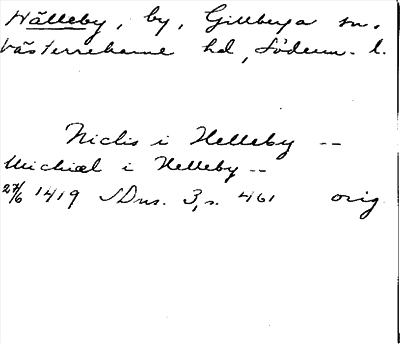 Hälleby, by, Gillberga sn,
Västerrekarne hd, Söderm. l.
Niclis i Helleby --
Michiæl i Helleby --
27/6 1419 SDns. 3, s. 461 orig